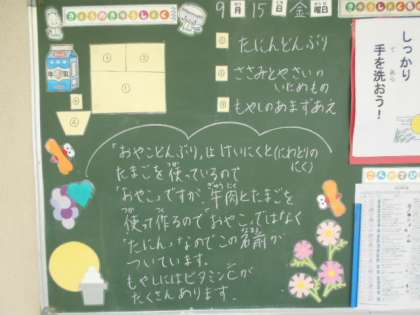 きょうのきゅうしょく
9月15日金曜日
① たにんどんぶり
② ささみとやさいの
いためもの
③ もやしのあまずあえ
しっかり
手を洗おう!
「おやこどんぶり」はけいにくと(にわとりの
にく)
たまごを使っているので
「おやこ」ですが、牛肉とたまごを
使って作るので「おやこ」ではなく
「たにん」なのでこの名前が
ついています。
もやしにはビタミンCが
たくさんあります。